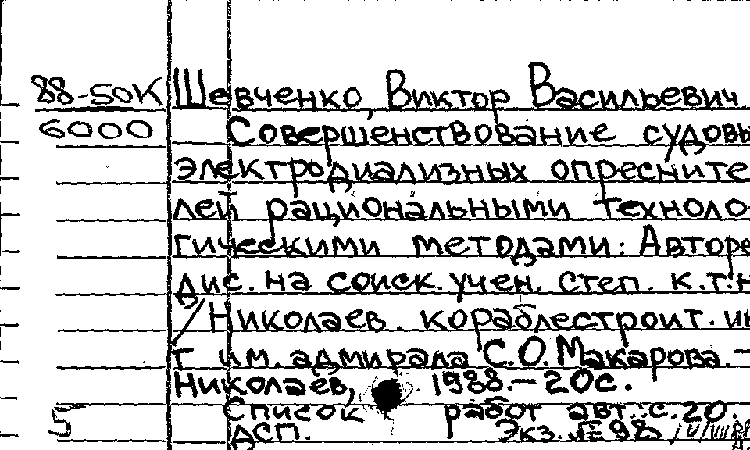 88-50К Шевченко, Виктор Васильевич.
6000 Совершенствование судовы
электродиализных опресните
лей рациональными техноло-
гическими методами: Авторе
дис. на соиск. учен. степ. к.т.н
/ Николаев. кораблестроит. ин
т им. адмирала С.О. Макарова. –
Николаев, 1988. – 20с.
Список работ авт.: с. 20.
5 ДСП. Экз. № 98